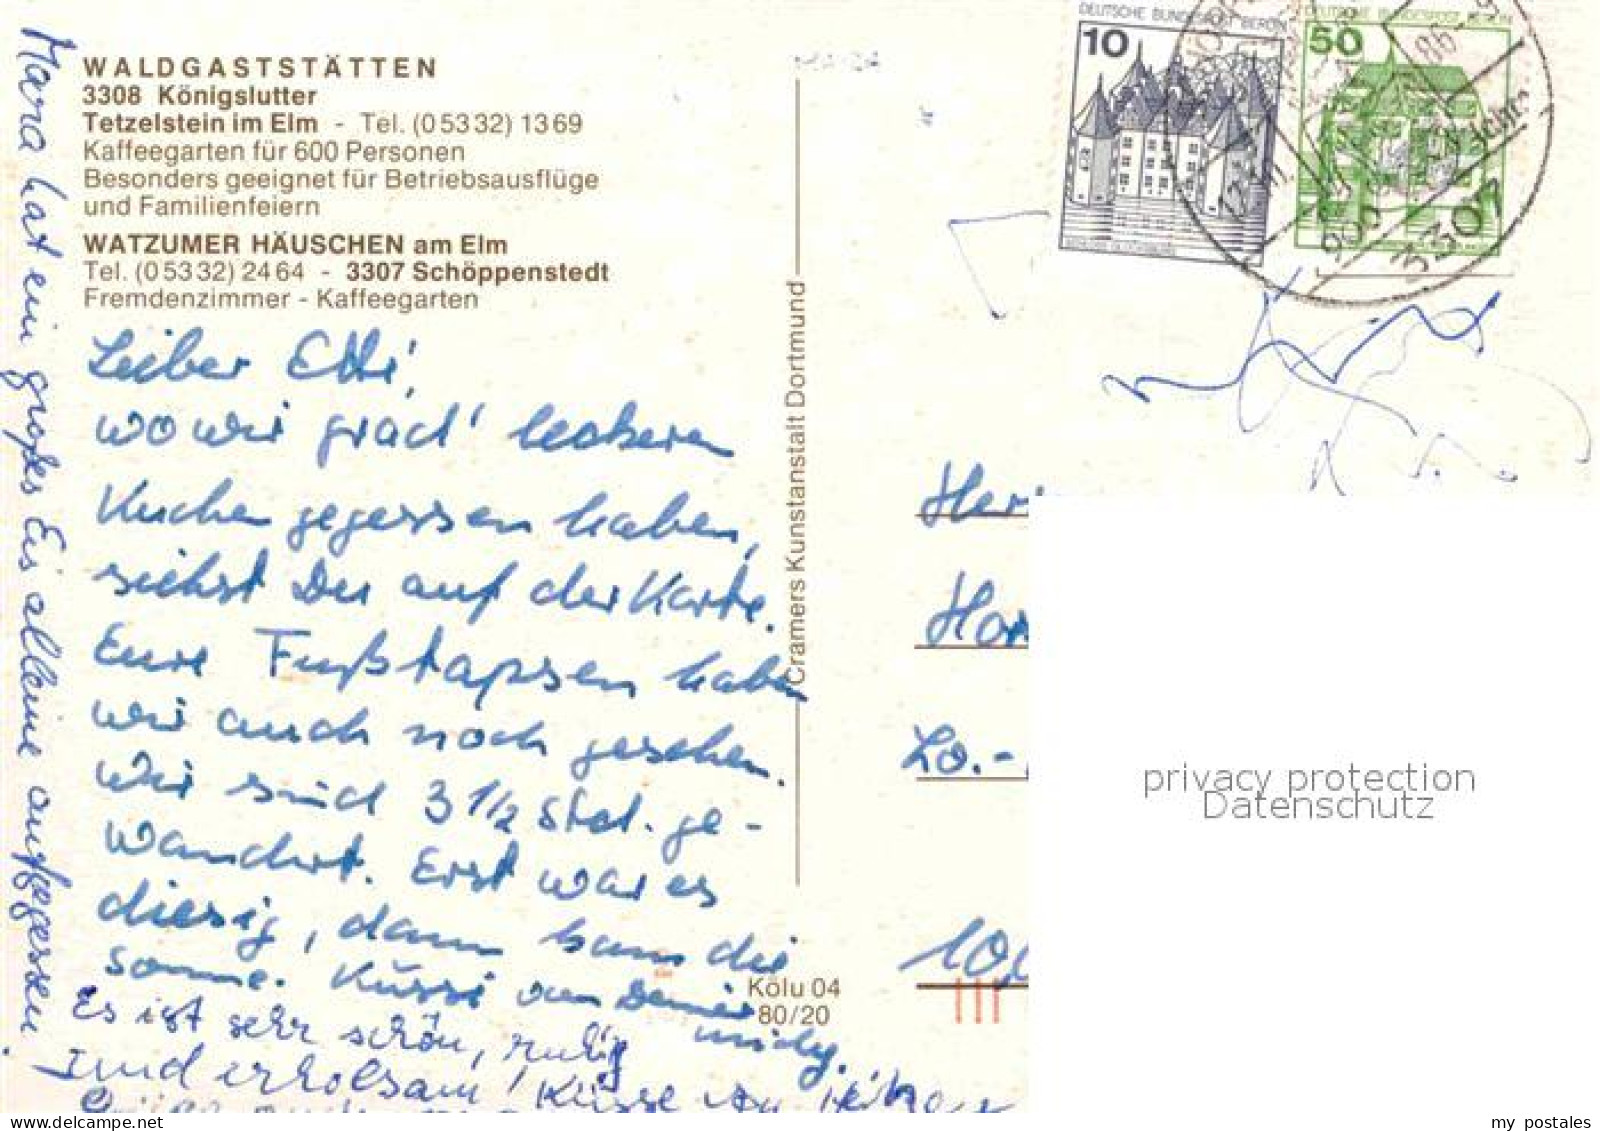 WALDGASTSTÄTTEN
3308 Königslutter
Tetzelstein im Elm - Tel. (05332) 1369
Kaffeegarten für 600 Personen
Besonders geeignet für Betriebsausflüge
und Familienfeiern
WATZUMER HÄUSCHEN am Elm
Tel. (05332) 2464 - 3307 Schöppenstedt
Fremdenzimmer - Kaffeegarten
Lieber Etti,
wo wir grad' leckeren
Kuchen gegessen haben,
siehst Du auf der Karte.
Eure Fußtapsen haben
wir auch noch gesehen.
Wir sind 3 1/2 Std. ge-
wandert. Erst war es
diesig, dann kam die
Sonne. Küssi von
Es ist sehr schön, ruhig
und erholsam! Küsse
Mara hat ein großes Eis alleine aufgegessen.
Cramers Kunstanstalt Dortmund
Kölu 04
80/20
DEUTSCHE BUNDESPOST BERLIN
10
DEUTSCHE BUNDESPOST BERLIN
50
3307
Her
Lo.-
privacy protection
Datenschutz
www.delcampe.net
my_postales